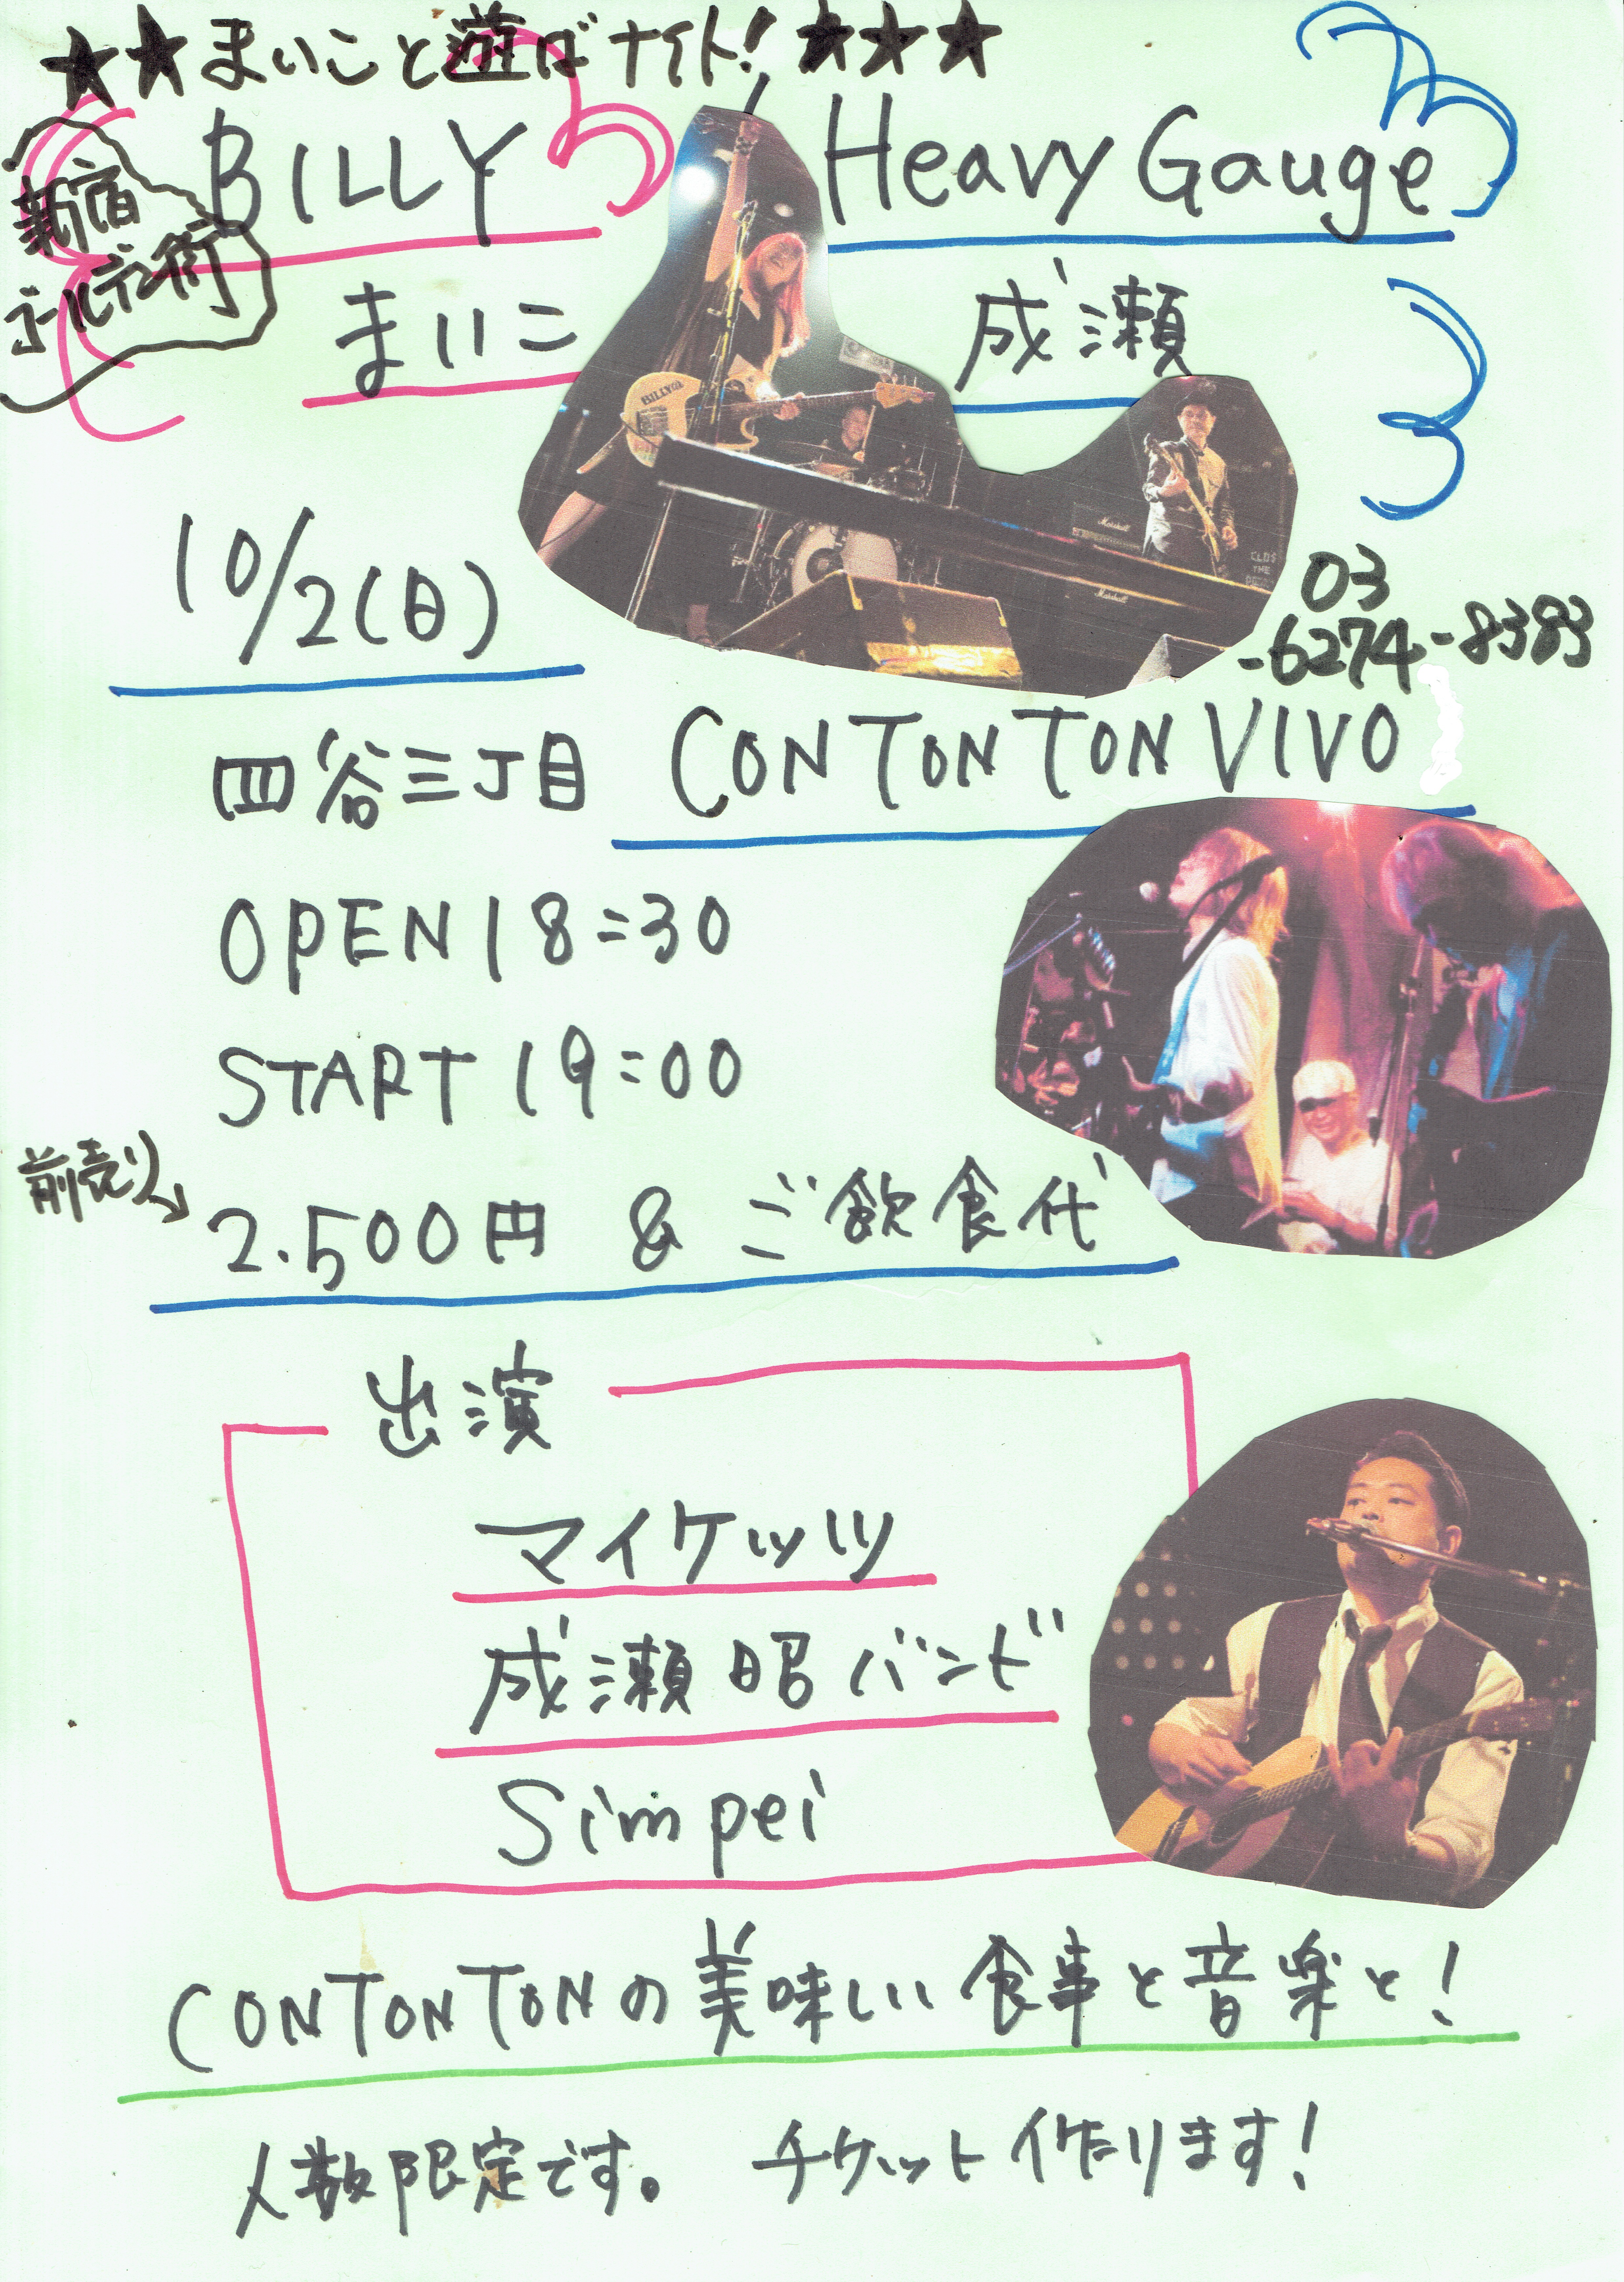 ★★まいこと遊ばナイト!★★★
新宿
ゴールデン街
BILLY
Heavy Gauge
まいこ
成瀬
BILLY
Marshall
Marshall
10/2(日)
03
-6274-8383
四谷三丁目 CONTONTON VIVO
OPEN 18:30
START 19:00
前売り→
2.500円 & ご飲食代
出演
マイケッツ
成瀬昭バンド
Simpei
CONTONTONの美味しい食事と音楽と!
人数限定です。 チケット作ります!